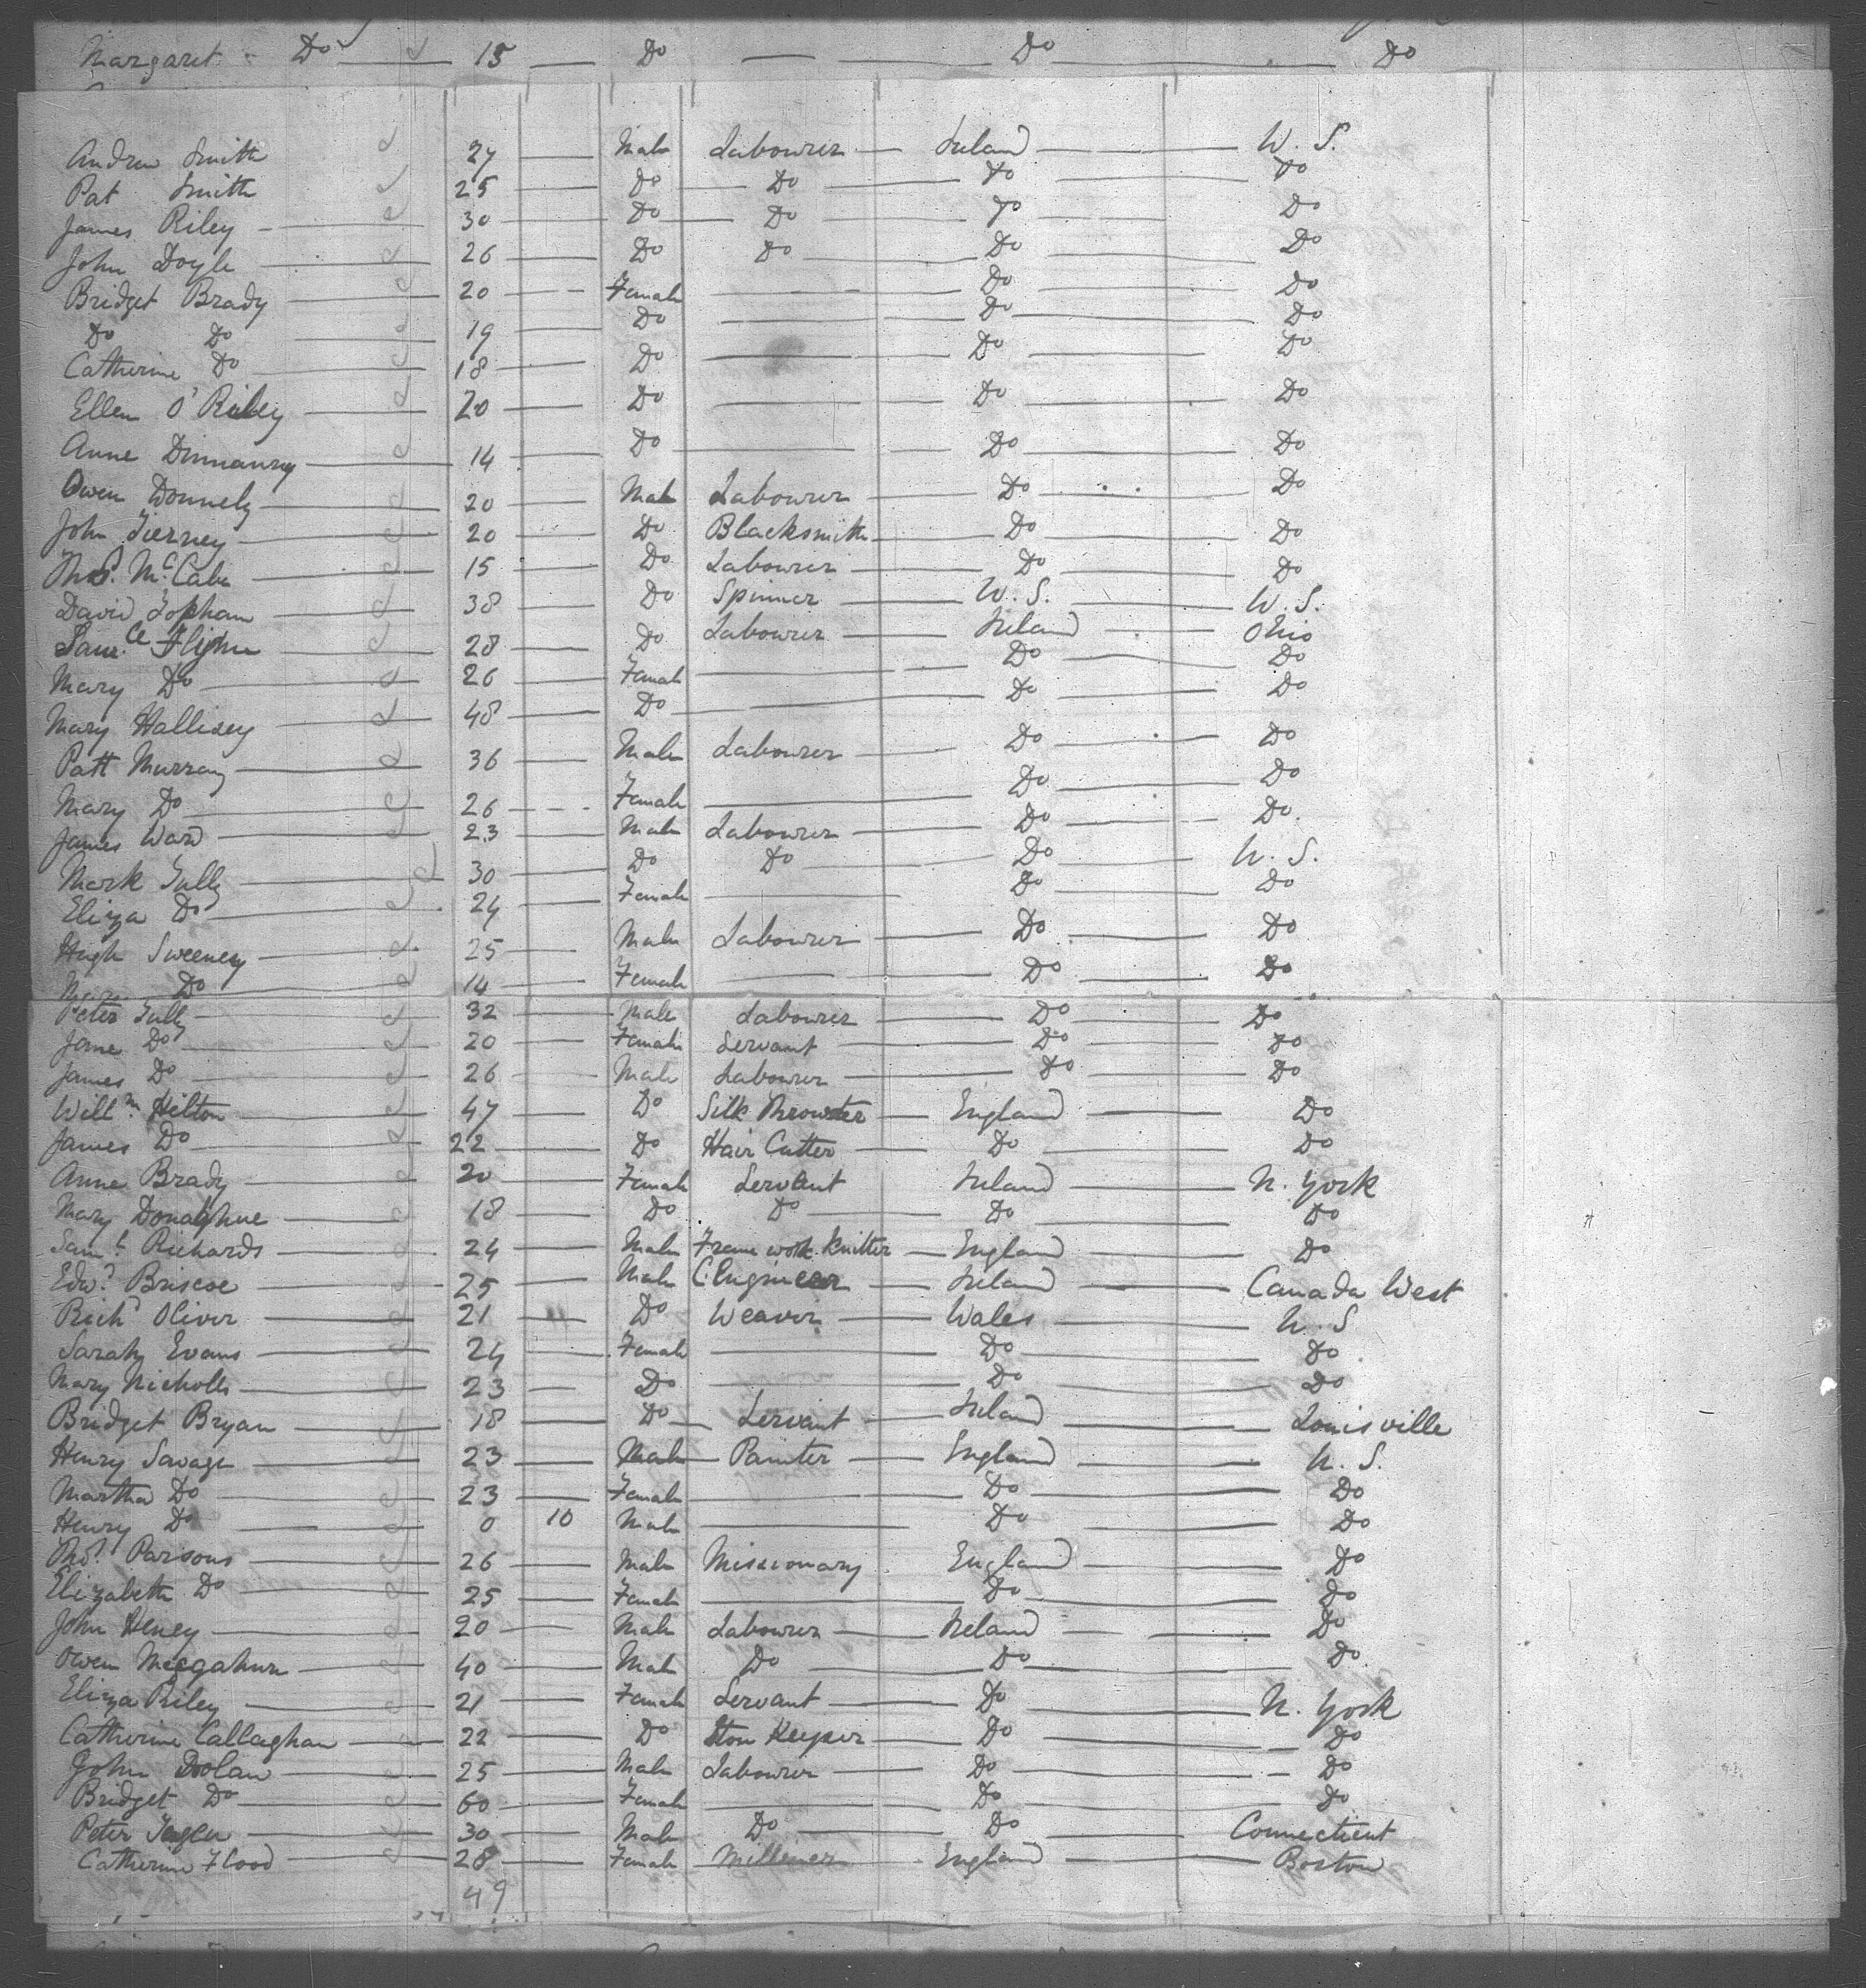 Margaret Do 15 Do Do Do
Andrew Smith 27 Male Labourer Ireland U. S.
Pat Smith 25 Do Do Do Do
James Riley 30 Do Do Do Do
John Doyle 26 Do Do Do Do
Bridget Brady 20 Female Do Do
Do Do 19 Do Do Do
Catherine Do 18 Do Do Do
Ellen O'Riley 20 Do Do Do
Anne 14 Do Do Do
Owen Donnely 20 Male Labourer Do Do
John Tierney 20 Do Blacksmith Do Do
Thos. McCabe 15 Do Labourer Do Do
David Topham 38 Do Spinner U. S. U. S.
28 Do Labourer Ireland Ohio
Mary Do 26 Female Do Do
Mary Hallisey 48 Do Do Do
Patt Murray 36 Male Labourer Do Do
Mary Do 26 Female Do Do
James Ward 23 Male Labourer Do Do
Mark Tully 30 Do Do Do U. S.
Eliza Do 24 Female Do Do
Hugh Sweeney 25 Male Labourer Do Do
Do 14 Female Do Do
Peter Tully 32 Male Labourer Do Do
Jane Do 20 Female Servant Do Do
James Do 26 Male Labourer Do Do
Willm. Hilton 47 Do Silk Throwster England Do
James Do 22 Do Hair Cutter Do Do
Anne Brady 20 Female Servant Ireland N. York
Mary Donaghue 18 Do Do Do Do
Saml. Richards 24 Male Frame work Knitter England Do
Edwd. Briscoe 25 Male C. Engineer Ireland Canada West
Richd Oliver 21 11 Do Weaver Wales U. S
Sarah Evans 24 Female Do Do
Mary Nicholls 23 Do Do Do
Bridget Bryan 18 Do Servant Ireland Louisville
Henry Savage 23 Male Painter England U. S.
Martha Do 23 Female Do Do
Henry Do 0 10 Male Do Do
Thos. Parsons 26 Male Missionary England Do
Elizabeth Do 25 Female Do Do
John Heney 20 Male Labourer Ireland Do
Owen 40 Male Do Do Do
Eliza Riley 21 Female Servant Do N. York
Catherine Callaghan 22 Do Keeper Do Do
John Dolan 25 Male Labourer Do Do
Bridget Do 60 Female Do Do
Peter 30 Male Do Do Connecticut
Catherine Flood 28 Female Milliner England Boston
49